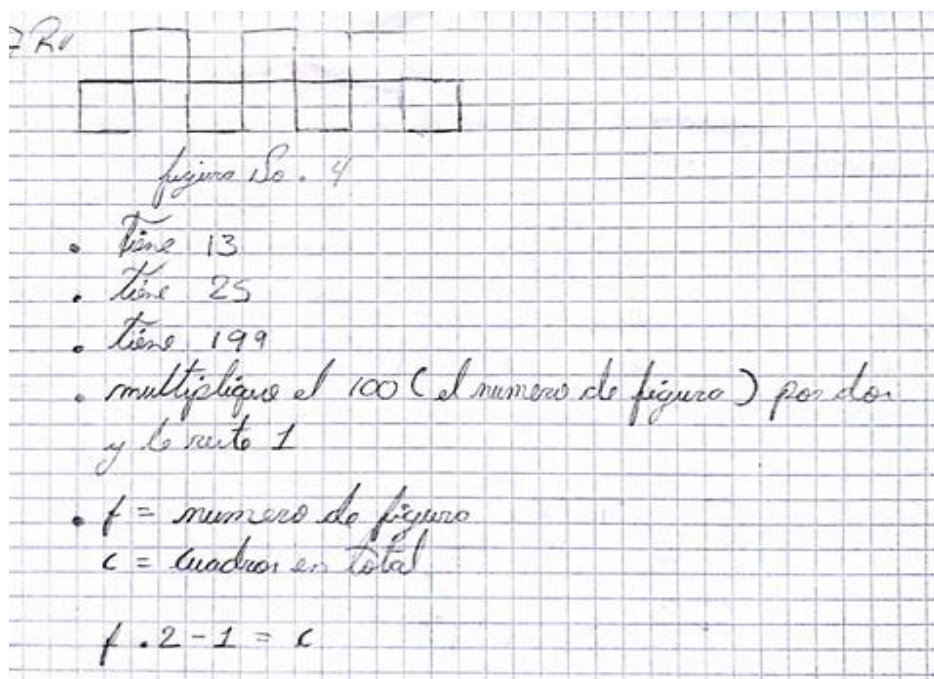 figura No. 4
• tiene 13
• tiene 25
• tiene 199
• multiplique el 100 (el numero de figura) por dos
y le resto 1
• f = numero de figura
c = cuadros en total
f . 2 - 1 = c